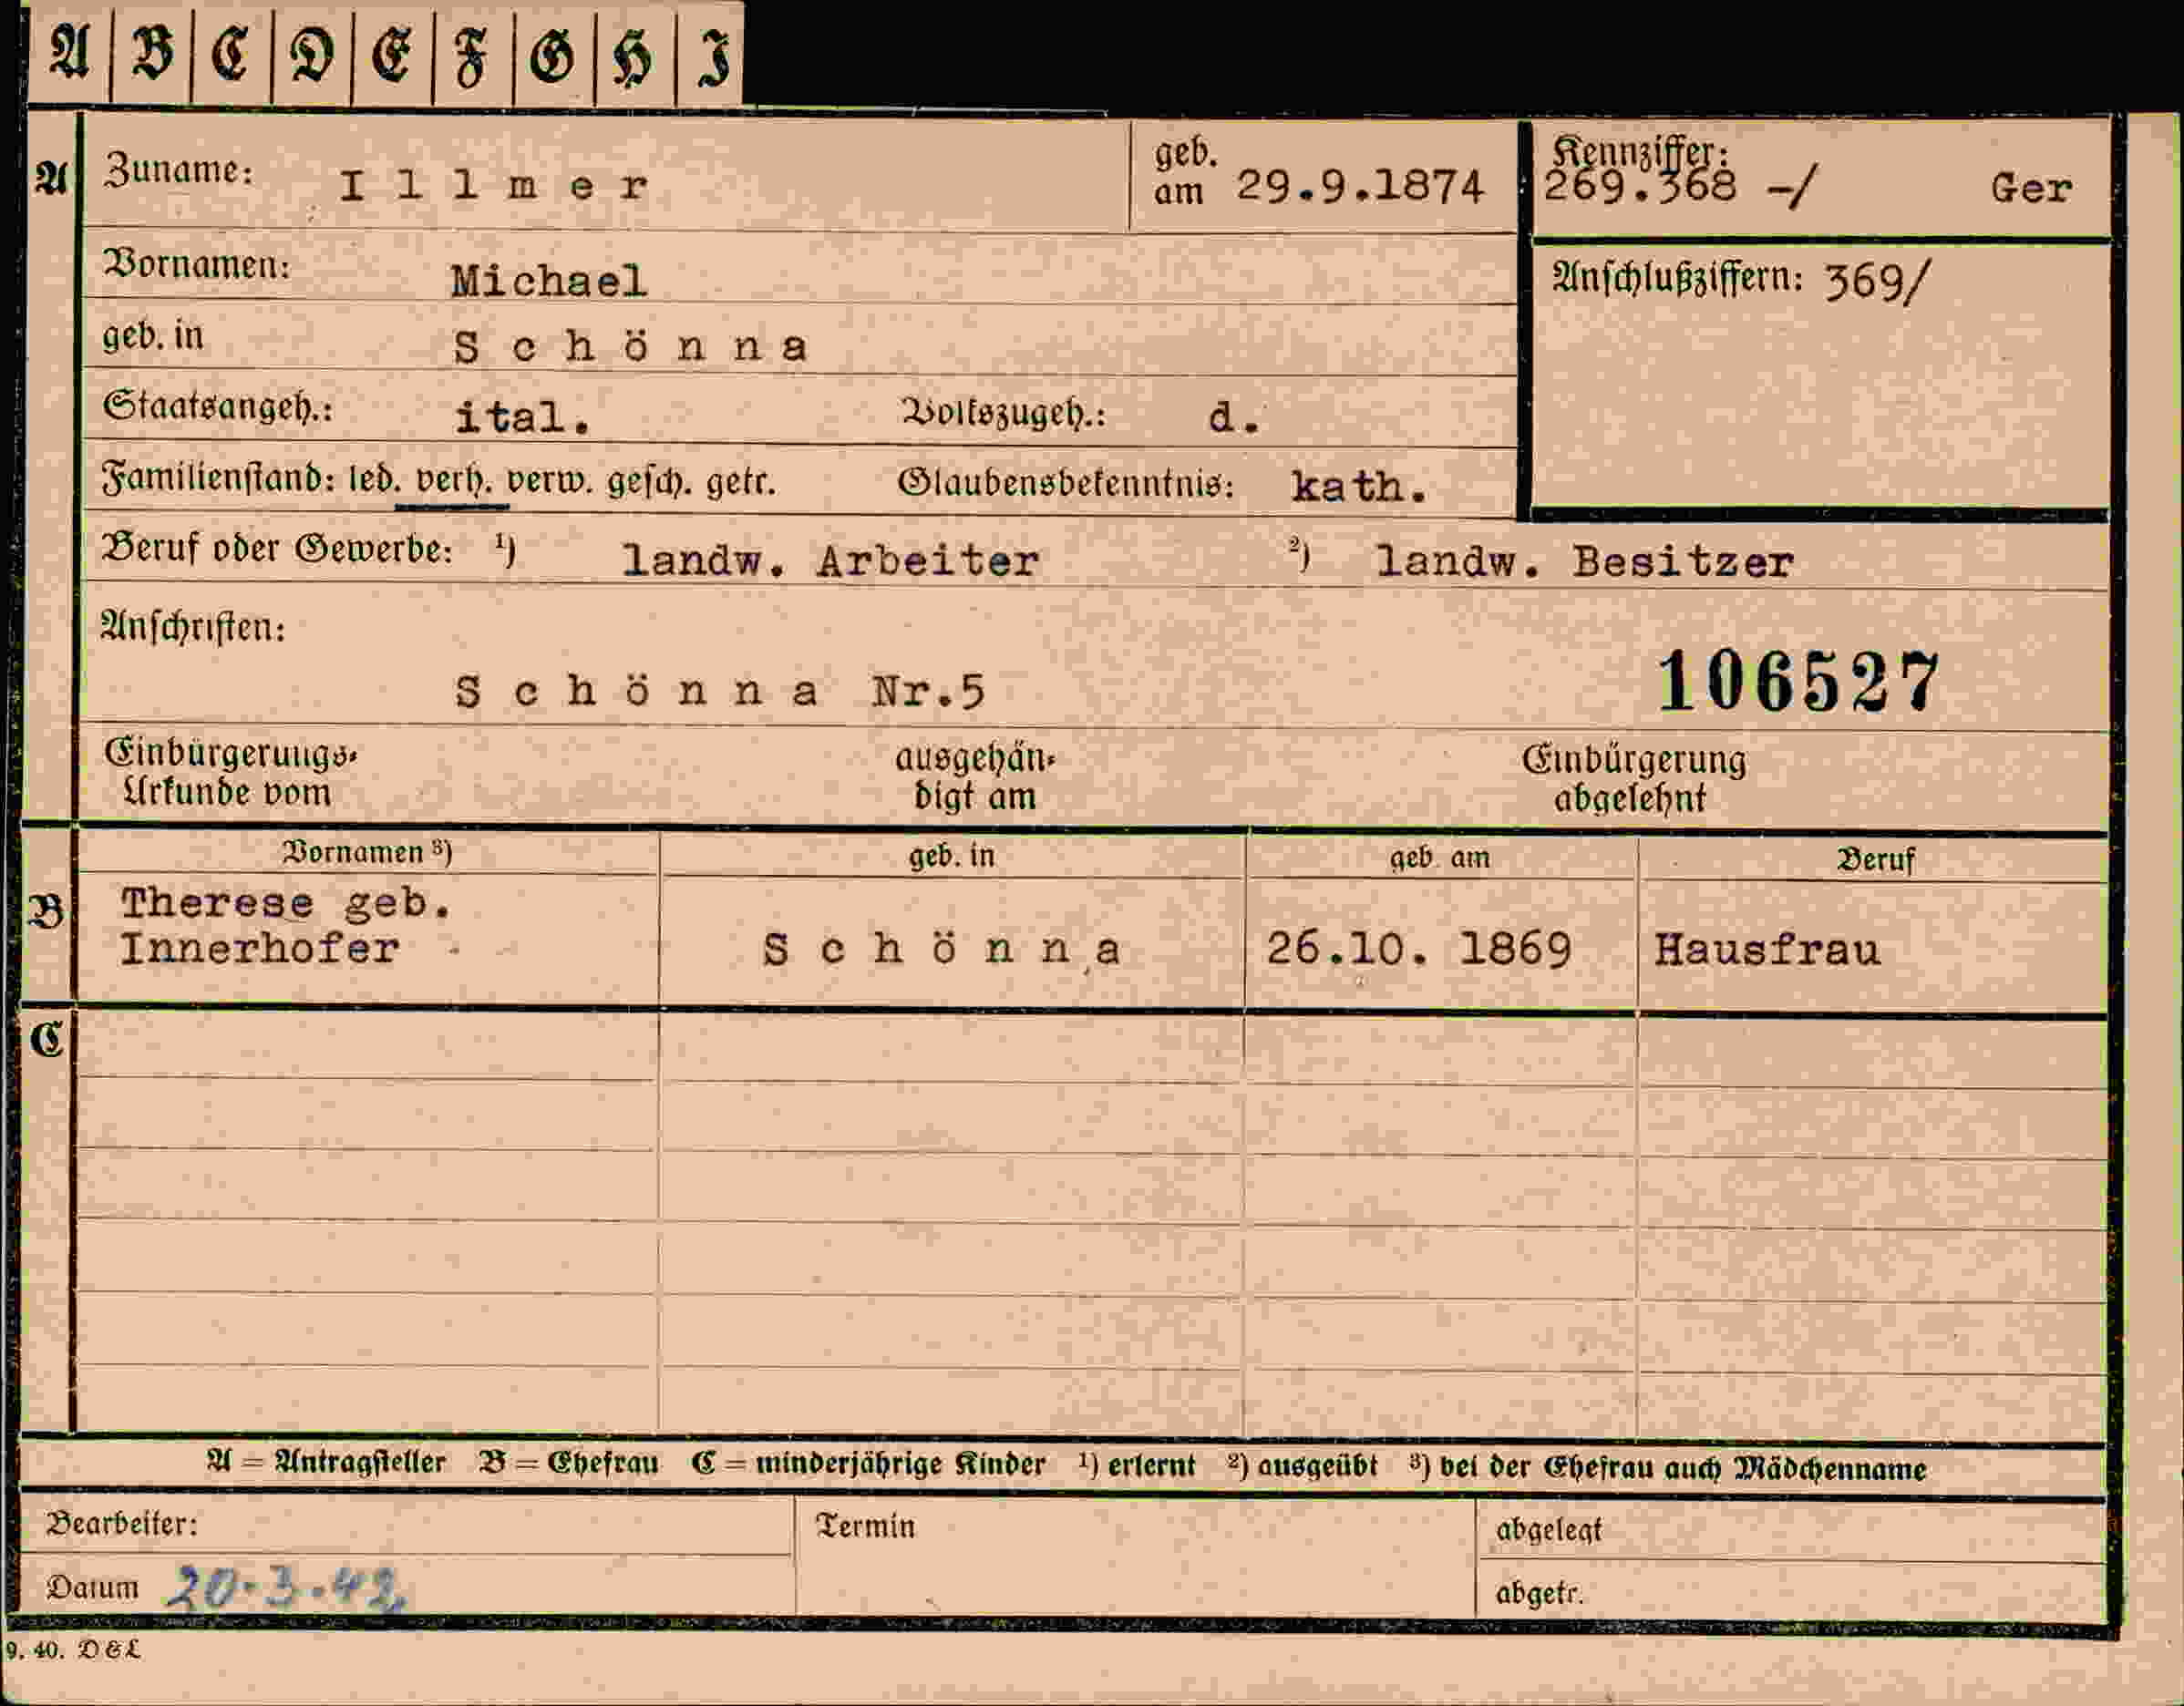 A B C D E F G H I
A Zuname: Illmer geb. am 29.9.1874 Kennziffer: 269.368 -/ Ger
Vornamen: Michael Anschlußziffern: 369/
geb. in Schönna
Staatsangeh.: ital. Volkszugeh.: d.
Familienstand: led. verh. verw. gesch. getr. Glaubensbekenntnis: kath.
Beruf oder Gewerbe: 1) landw. Arbeiter 2) landw. Besitzer
Anschriften:
Schönna Nr.5 106527
Einbürgerungs- ausgehän- Einbürgerung
Urkunde vom digt am abgelehnt
Vornamen 3) geb. in geb. am Beruf
B Therese geb.
Innerhofer Schönna 26.10. 1869 Hausfrau
C
A = Antragsteller B = Ehefrau C = minderjährige Kinder 1) erlernt 2) ausgeübt 3) bei der Ehefrau auch Mädchenname
Bearbeiter: Termin abgelegt
Datum 20.3.42. abgetr.
9. 40. D&L